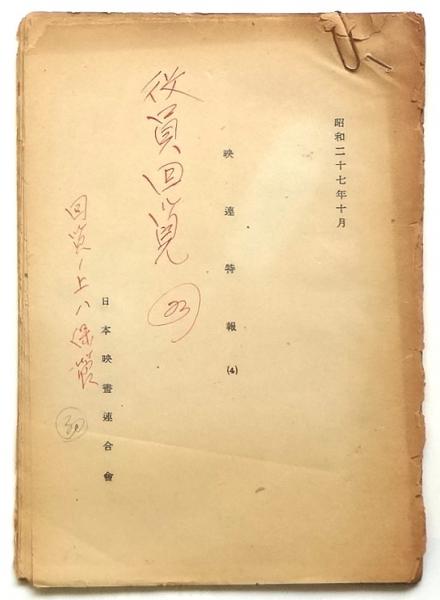 昭和二十七年十月
映連特報(4)
役員回覧
日本映畫連合會
回覧ノ上ハ保管